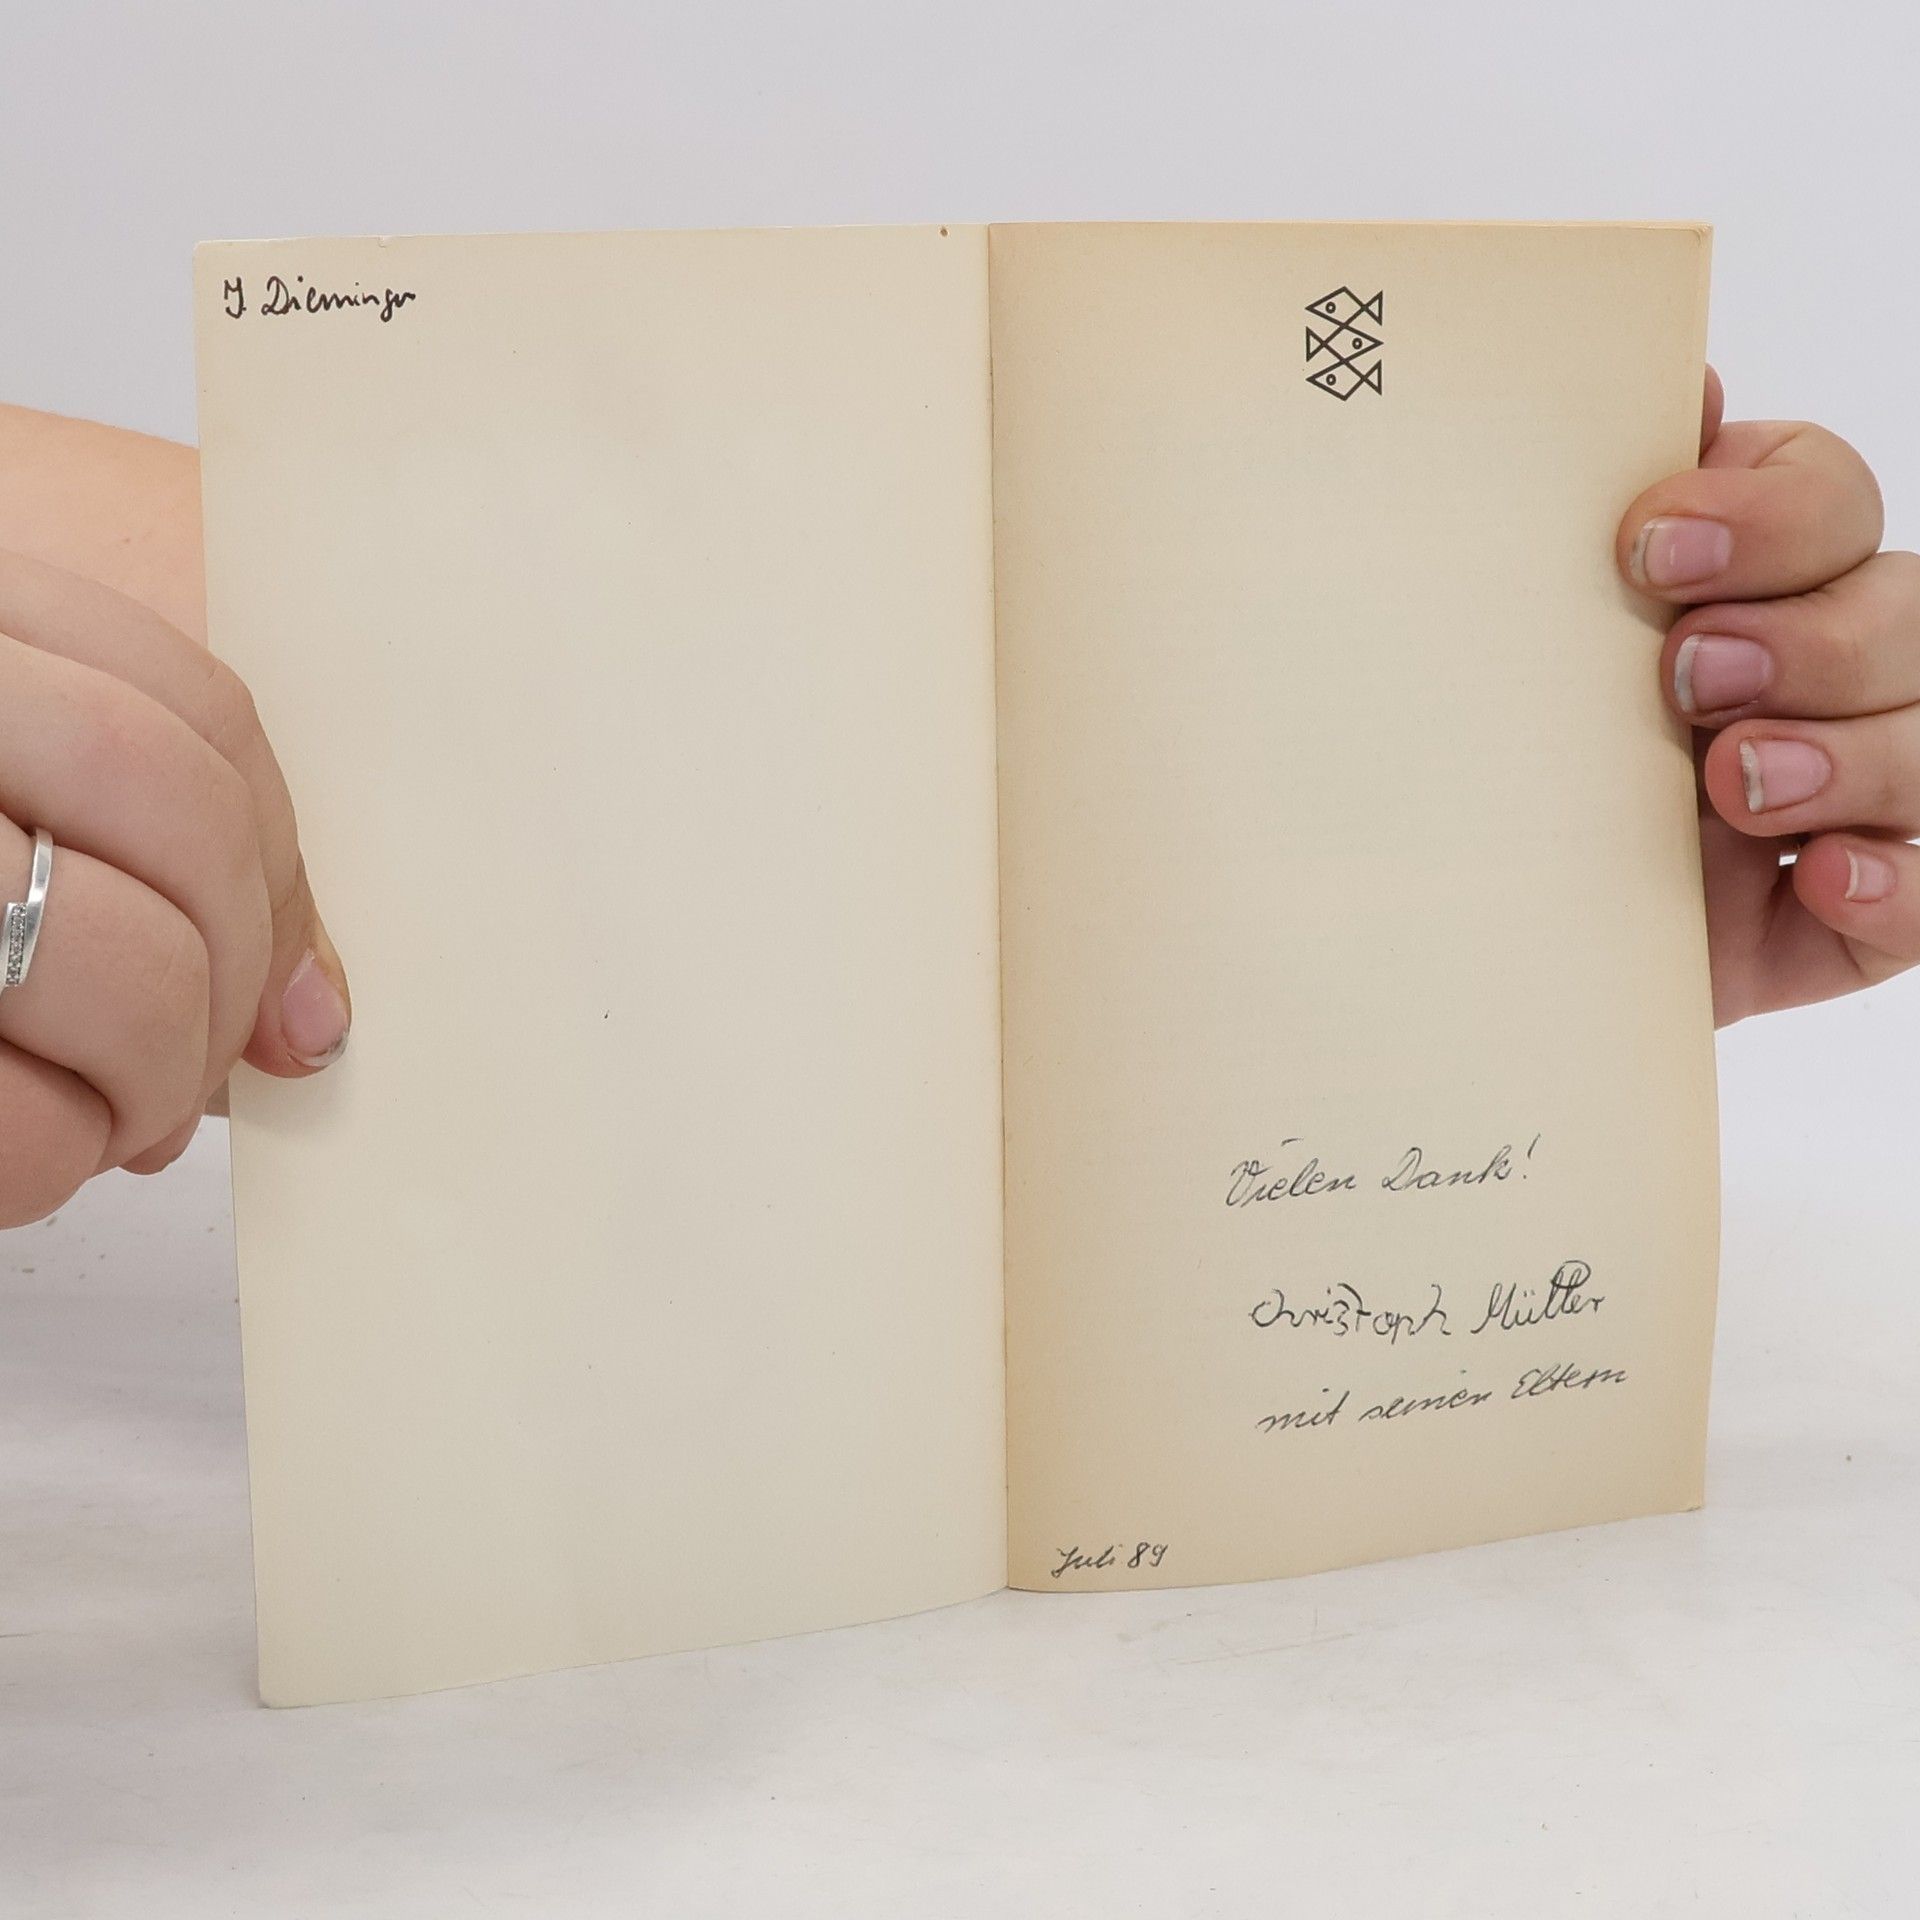 J. Dieminger
Vielen Dank!
Christoph Müller
mit seinen Eltern
Juli 89